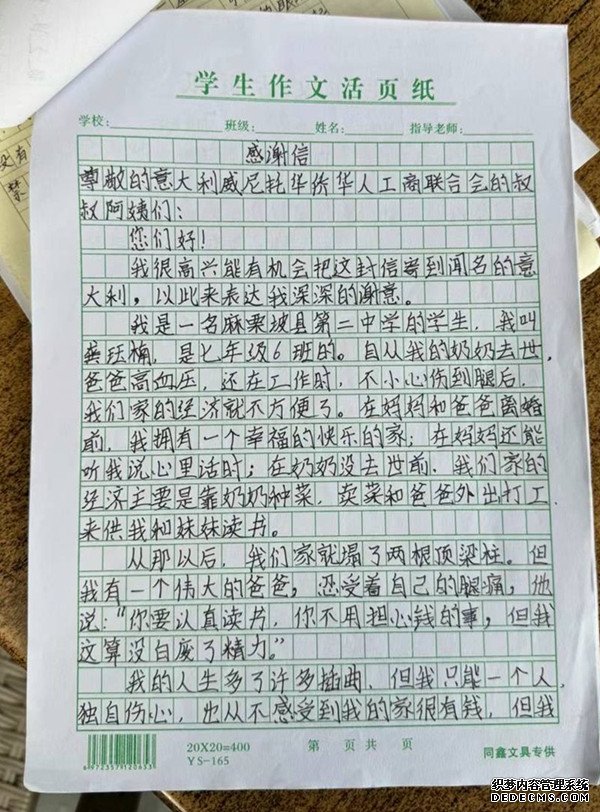 学生作文活页纸
学校: 班级: 姓名: 指导老师:
感谢信
尊敬的意大利威尼托华侨华人工商联合会的叔
叔阿姨们:
您们好!
我很高兴能有机会把这封信寄到闻名的意
大利,以此来表达我深深的谢意。
我是一名麻栗坡县第二中学的学生,我叫
龚珏楠,是七年级6班的。自从我的奶奶去世,
爸爸高血压,还在工作时,不小心伤到腿后,
我们家的经济就不方便了。在妈妈和爸爸离婚
前,我拥有一个幸福的快乐的家;在妈妈还能
听我说心里话时;在奶奶没去世前,我们家的
经济主要是靠奶奶种菜,卖菜和爸爸外出打工
来供我和妹妹读书。
从那以后,我们家就塌了两根顶梁柱。但
我有一个伟大的爸爸,忍受着自己的腿痛,他
说:“你要认真读书,你不用担心钱的事,但我
这算没白废了精力。”
我的人生多了许多插曲,但我只能一个人
独自伤心,也从不感受到我的家很有钱,但我
20X20=400
YS-165
第 页共 页
同鑫文具专供
织梦内容管理系统
DEDECMS.COM